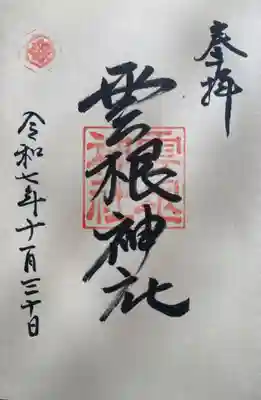 奉拝
雲根神社
令和七年十一月三十日